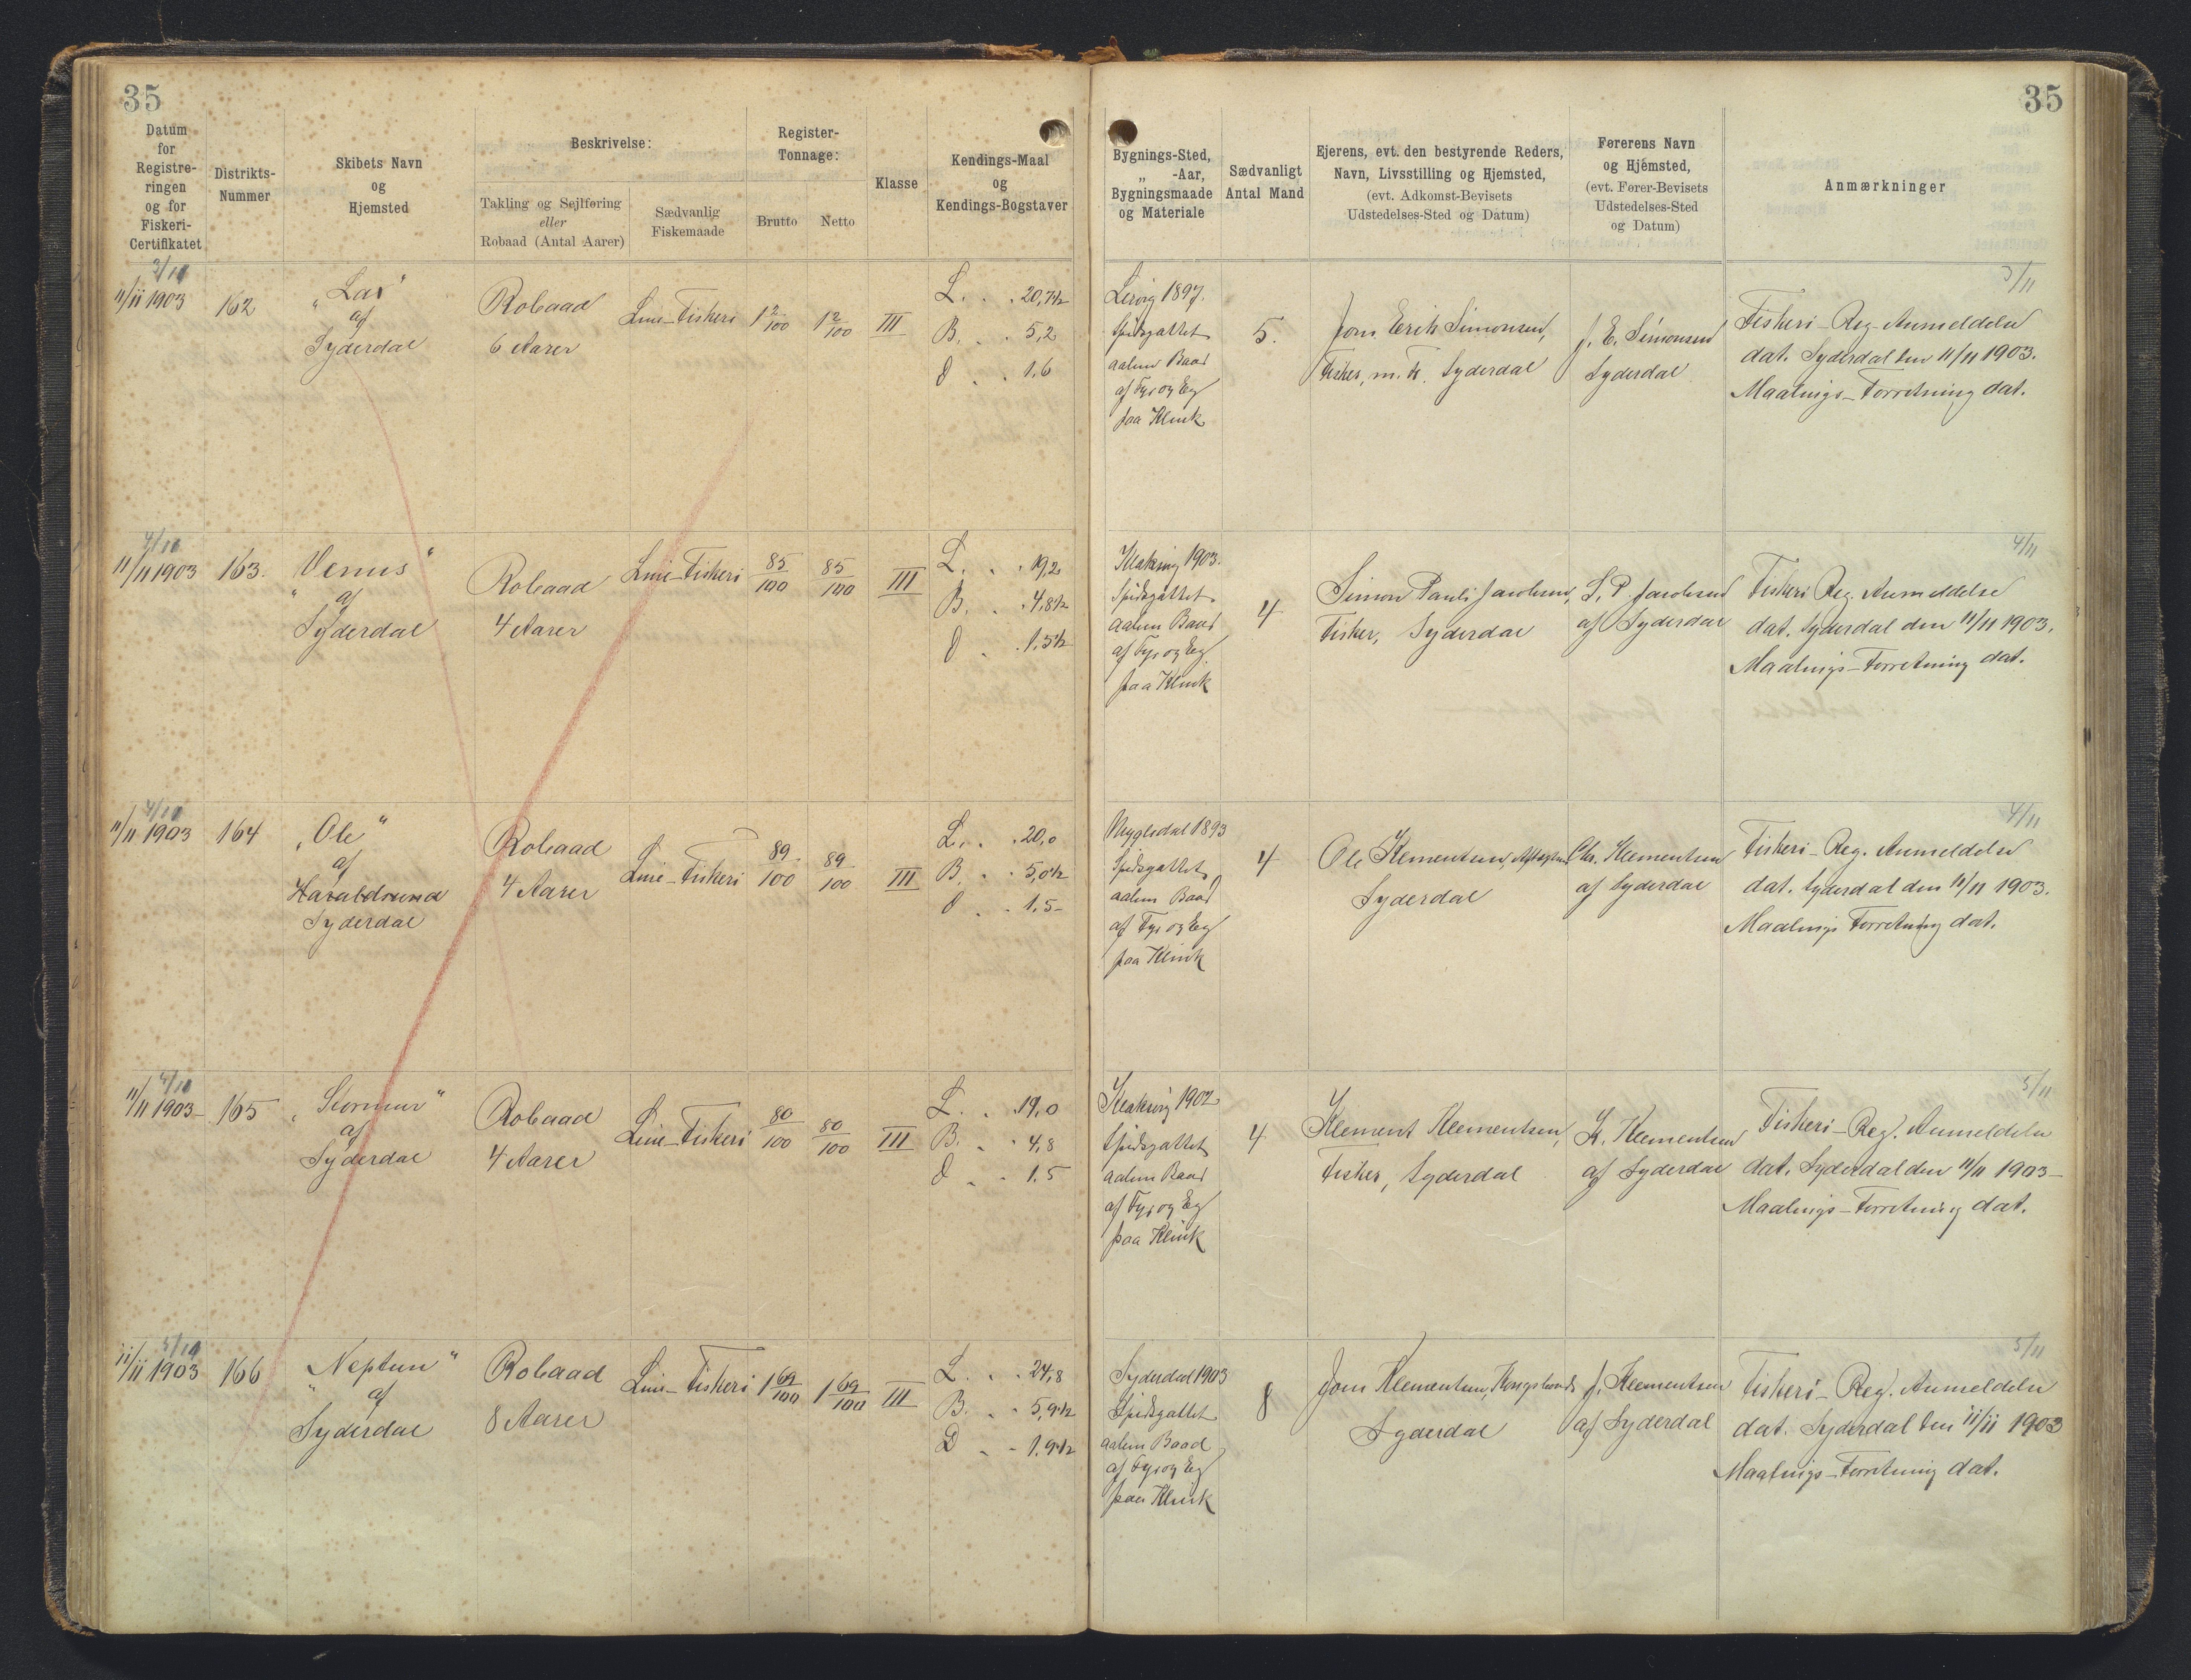 35
35
Datum
for
Registre-
ringen
og for
Fiskeri-
Certifikatet
Distrikts-
Nummer
Skibets Navn
og
Hjemsted
Beskrivelse:
Takling og Sejlføring
eller
Robaad (Antal Aarer)
Sædvanlig
Fiskemaade
Register-
Tonnage:
Brutto
Netto
Klasse
Kendings-Maal
og
Kendings-Bogstaver
Bygnings-Sted,
„ -Aar,
Bygningsmaade
og Materiale
Sædvanligt
Antal Mand
Ejerens, evt. den bestyrende Reders,
Navn, Livsstilling og Hjemsted,
(evt. Adkomst-Bevisets
Udstedelses-Sted og Datum)
Førerens Navn
og Hjemsted,
(evt. Fører-Bevisets
Udstedelses-Sted
og Datum)
Anmærkninger
3/11
11/11 1903
162
af
Syderdal
Robaad
6 Aarer
Line-Fiskeri
1 2/100
1 2/100
III
L. . . 20,7½
B. . . 5,2
D . . 1.6
Lervig 1897.
Spidsgattet
aaben Baad
af Fyr og Eg
paa Klink
5.
Joen Erik Simonsen,
Fisker, m. v. Syderdal
J. E. Simonsen
Syderdal
3/11
Fiskeri-Reg-Anmeldelse
dat. Syderdal den 11/11 1903.
Maalings-Forretning dat.
4/11
11/11 1903
163.
„Venus“
af
Syderdal
Robaad
4 Aarer
Line-Fiskeri
85/100
85/100
III
L. . . 19,2
B. . . 4,8½
D . . 1.5½
Klaksvig 1903.
Spidsgattet
aaben Baad
af Fyr og Eg
paa Klink
4
Simon Pauli Jacobsen,
Fisker, Syderdal
S. P. Jacobsen
af Syderdal
4/11
Fiskeri Reg. Anmeldelse
dat. Syderdal den 11/11 1903.
Maalings-Forretning dat.
4/11
11/11 1903
164
„Ole“
af
Haraldsund
Syderdal
Robaad
4 Aarer
Line-Fiskeri
89/100
89/100
III
L. . . 20,0
B. . . 5,0½
D . . 1.5-
1893
Spidsgattet
aaben Baad
af Fyr og Eg
paa Klink
4
Ole Klementsen,
Syderdal
Chr. Klementsen
af Syderdal
4/11
Fiskeri-Reg. Anmeldelse
dat. Syderdal den 11/11 1903.
Maalings Forretning dat.
4/11
11/11 1903-
165
„Stormur“
af
Syderdal
Robaad
4 Aarer
Line-Fiskeri
80/100
80/100
III
L. . . 19,0
B. . . 4,8
D . . 1.5
Klaksvig 1902
Spidsgattet
aaben Baad
af Fyr og Eg
paa Klink
4
Klement Klementsen,
Fisker, Syderdal
K. Klementsen
af Syderdal
5/11
Fiskeri-Reg. Anmeldelse
dat. Syderdal den 11/11 1903-
Maalings-Forretning dat.
5/11
11/11 1903
166
„Neptun“
af
Syderdal
Robaad
8 Aarer
Line-Fiskeri
1 69/100
1 69/100
III
L. . . 24,8
B. . . 5,9½
D . . 1.9½
Syderdal 1903
Spidsgattet
aaben Baad
af Fyr og Eg
paa Klink
8
Joen Klementsen, Kongsbonde
Syderdal
J. Klementsen
af Syderdal
5/11
Fiskeri-Reg. Anmeldelse
dat. Syderdal den 11/11 1903
Maalings-Forretning dat.